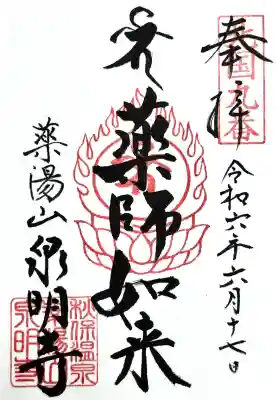 奉拝
令和六年六月十七日
薬師如来
薬湯山泉明寺
秋保温泉
泉明寺